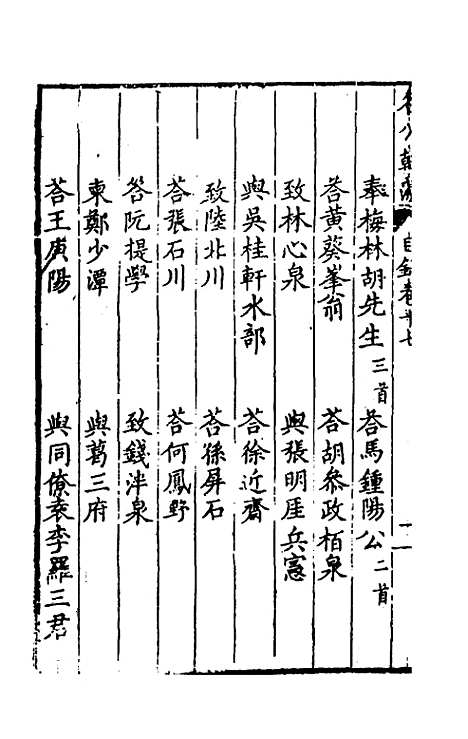 名公翰藻 目錄卷卅七
奉梅林胡先生三首 荅馬鍾陽公二首
荅黃葵峯翁 荅胡叅政栢泉
致林心泉 與張明厓兵憲
與吳桂軒水部 荅徐近齋
致陸北川 荅孫屏石
荅張石川 荅何鳳野
荅阮提學 致錢泮泉
柬鄭少潭 與葛三府
荅王庚陽 與同僚袁李羅三君